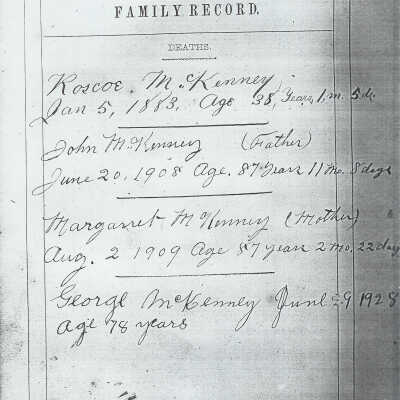 FAMILY RECORD.
DEATHS.
Roscoe. McKenney
Jan 5, 1883, Age 38, Years, 1, m. 5 d.
John McKenney (Father)
June 20, 1908 Age. 87 Years 11 Mo. 8 days
Margarret McKenney (Mother)
Aug. 2 1909 Age 87 years 2 Mo, 22 day
George McKenney June 29 1928
Age 78 years